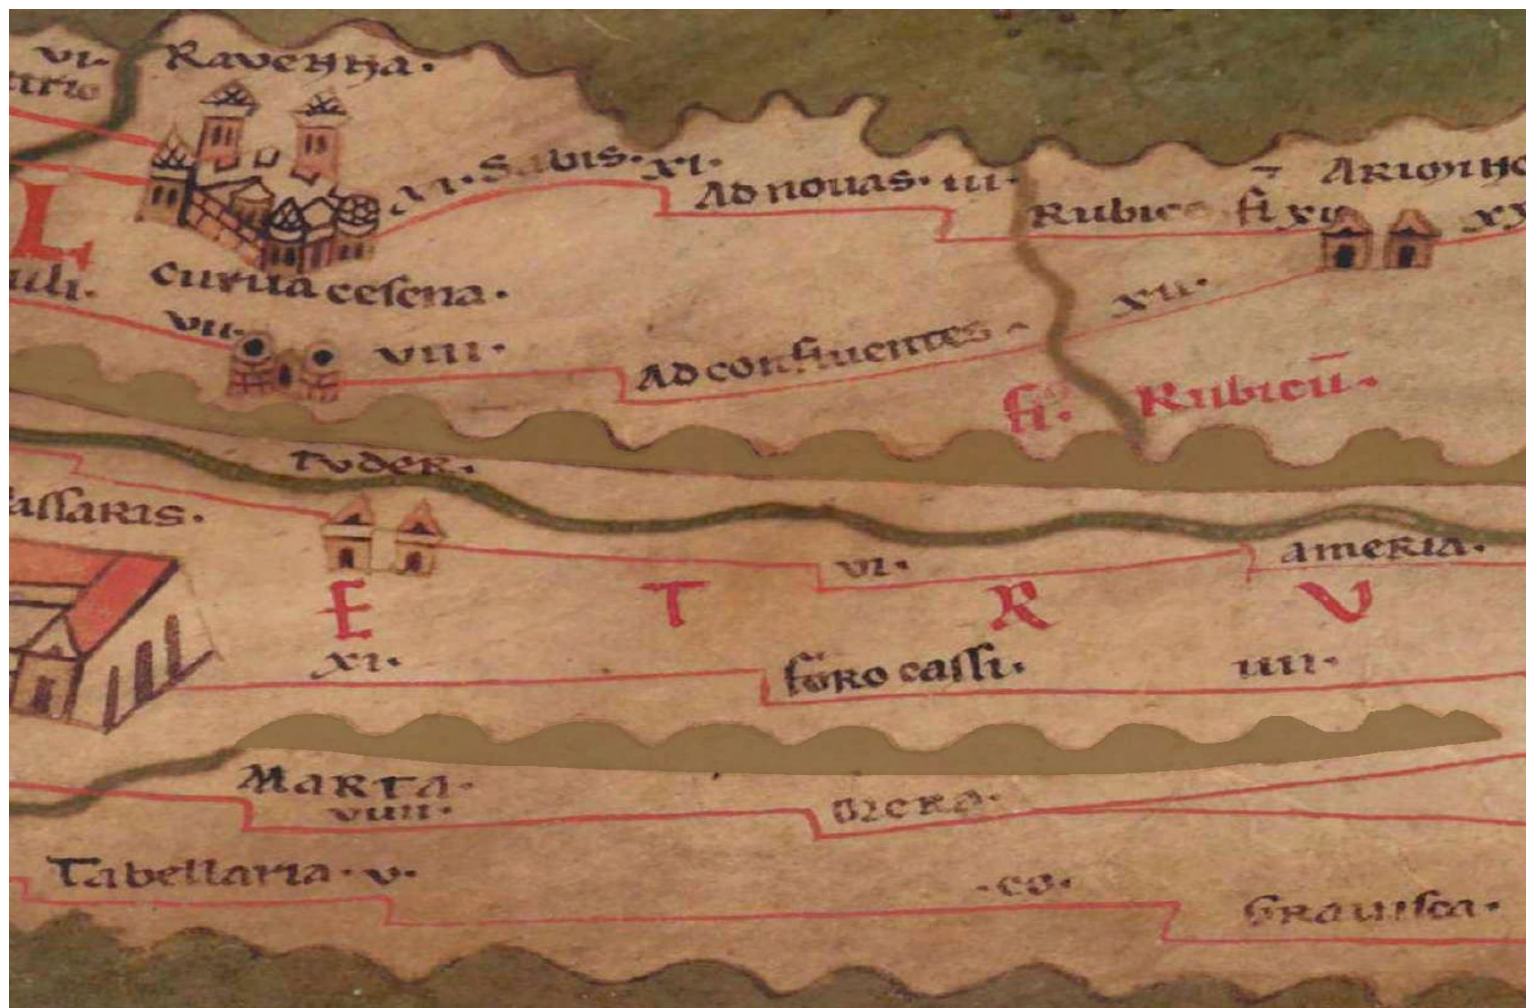 VI. Ravenna.
Sabis. XI.
Ad novas. III.
Rubico fl XII
Arimino
XX
L
Curva cesena.
VII.
VIII.
Ad confluentes.
XII.
fl. Rubicū.
Tuder.
assaris.
VI.
ameria.
E T R V
XI.
foro cassi.
IIII.
Marta.
VIIII.
Tabellaria. V.
.co.
Gravisca.